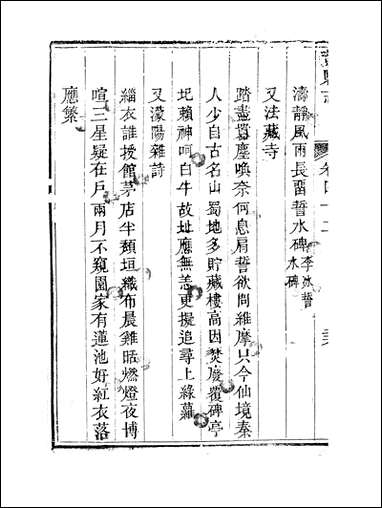 濤靜風雨長留誓水碑李冰誓水碑
又法藏寺
踏盡囂塵喚奈何息肩誓欲問維摩只今仙境秦
人少自古名山蜀地多貯藏樓高因焚廢覆碑亭
圮賴神呵白牛故址應無恙更擬追尋上綠蘿
又濛陽雜詩
緇衣誰援館茅店半頹垣織布晨雞聒燃燈夜博
喧三星疑在戶兩月不窺園家有蓮池好紅衣落
應繁